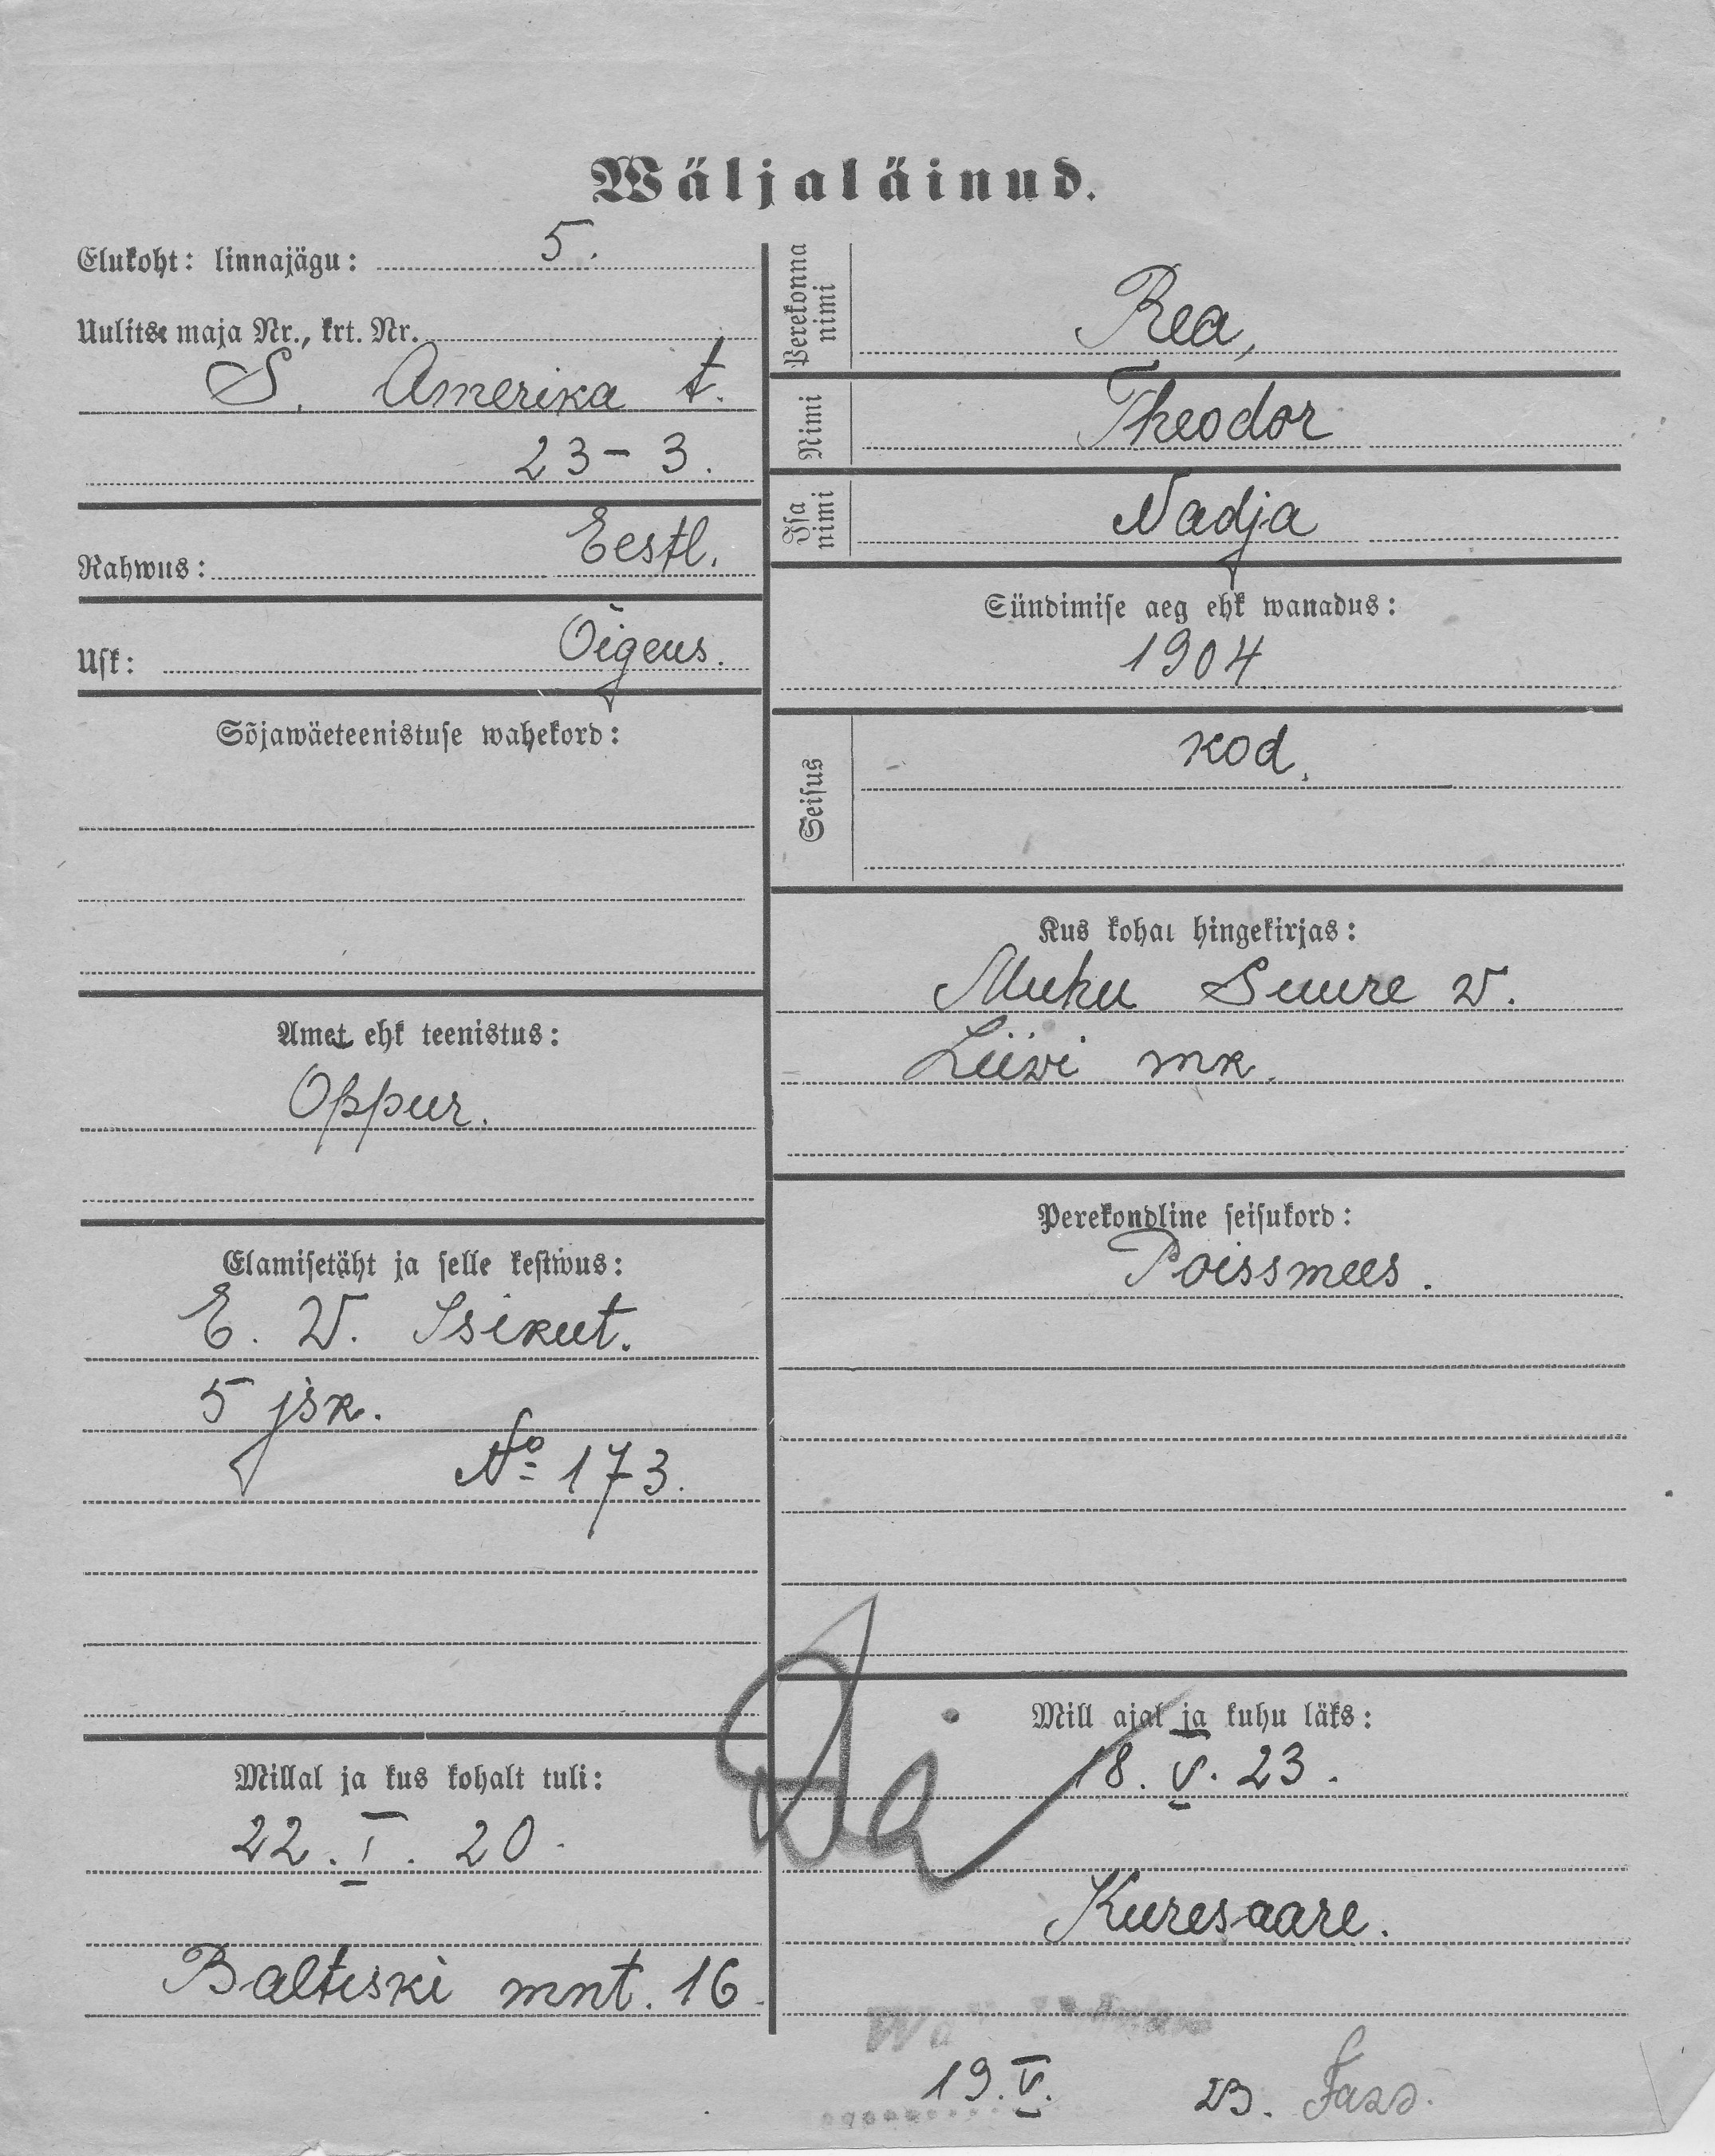 Wäljaläinud.
Elukoht: linnajägu: 5.
Uulitse maja Nr., krt. Nr.
S. Amerika t.
23 – 3.
Rahwus: Eestl.
Usk: Õigeus.
Sõjawäeteenistuse wahekord:
Amet ehk teenistus:
Oppur.
Elamisetäht ja selle kestwus:
E. W. Isikut.
5 jsk.
№ 173.
Millal ja kus kohalt tuli:
22. I. 20.
Baltiski mnt. 16.
Perekonna nimi
Rea,
Nimi
Theodor
Isa nimi
Nadja
Sündimise aeg ehk wanadus:
1904
Seisus
kod.
Kus kohal hingekirjas:
Muhu Suure w.
Liiwi mk.
Perekondline seisukord:
Poissmees.
Mill ajal ja kuhu läks:
18. V. 23.
Kuresaare.
19. V. 23.